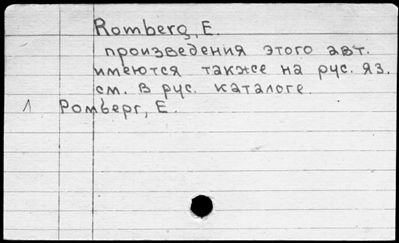 Romberg, E.
произведения этого авт.
имеются также на рус. яз.
см. в рус. каталоге.
1 Ромберг, Е.